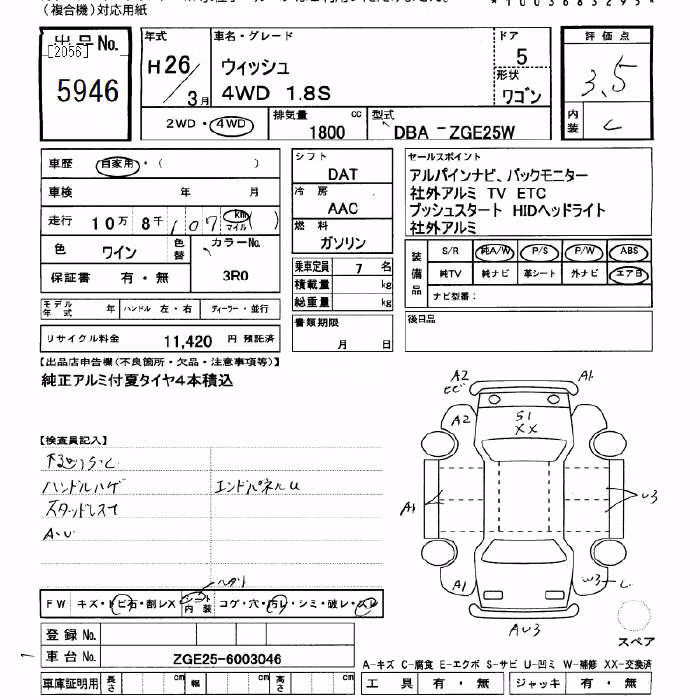 (複合機)対応用紙
*1003683295*
出品No.
[2056]
5946
年式
H26/3月
車名・グレード
ウィッシュ
4WD 1.8S
ドア
5
形状
ワゴン
2WD・4WD
排気量
1800 cc
型式
DBA-ZGE25W
評価点
3.5
内装
C
車歴 自家用・( )
車検 年 月
走行 10万8千107 km マイル ( )
色 ワイン 色替 カラーNo. 3R0
保証書 有・無
モデル年式 年 ハンドル 左・右 ディーラー・並行
リサイクル料金 11,420 円 預託済
シフト
DAT
冷房
AAC
燃料
ガソリン
乗車定員 7 名
積載量 kg
総重量 kg
書類期限
月 日
セールスポイント
アルパインナビ、バックモニター
社外アルミ TV ETC
プッシュスタート HIDヘッドライト
社外アルミ
装備品
S/R 純A/W P/S P/W ABS
純TV 純ナビ 革シート 外ナビ エアB
ナビ型番:
後日品
【出品店申告欄(不良箇所・欠品・注意事項等)】
純正アルミ付夏タイヤ4本積込
【検査員記入】
ハンドルハゲ エンドパネルU
スタッドレス
A・U
A2 A1
A2 S1
XX
A1 U3
A1 W3
AU3
スペア
FW キズ・トビ石・割レX シート内装 コゲ・穴・汚レ・シミ・破レ・スレ
登録No.
車台No. ZGE25-6003046
A-キズ C-腐食 E-エクボ S-サビ U-凹ミ W-補修 XX-交換済
車庫証明用 長さ cm 幅 cm 高さ cm
工具 有・無 ジャッキ 有・無